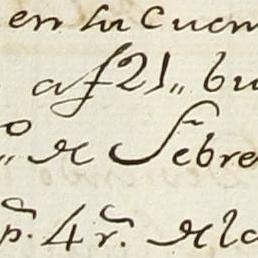 en su cuen
af 21,, bu
o,, de Febre
p.ª 4 r.ª de la